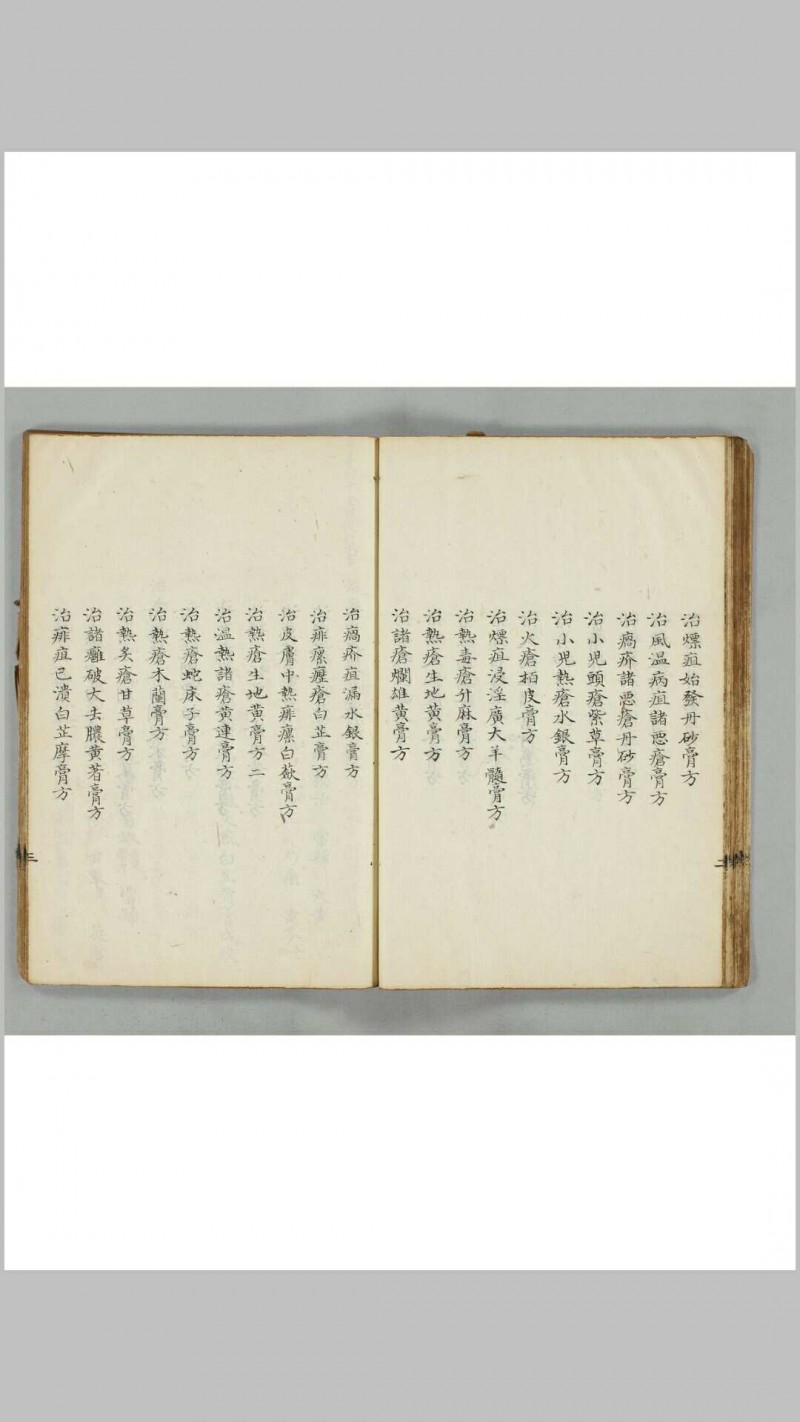 治熛疽始發丹砂膏方
治風溫病疽諸悪瘡膏方
治瘑疥諸悪瘡丹砂膏方
治小児頭瘡紫草膏方
治小児熱瘡水銀膏方
治火瘡栢皮膏方
治熛疽浸淫廣大羊髓膏方
治熱毒瘡升麻膏方
治熱瘡生地黄膏方
治諸瘡爛雄黄膏方
二
治瘑疥疽漏水銀膏方
治痱瘰癧瘡白芷膏方
治皮膚中熱痱瘰白蘞膏方
治熱瘡生地黄膏方二
治温熱諸瘡黄連膏方
治熱瘡蛇床子膏方
治熱瘡木蘭膏方
治熱炙瘡甘草膏方
治諸癰破大去膿黄芪膏方
治痱疽已潰白芷摩膏方
三